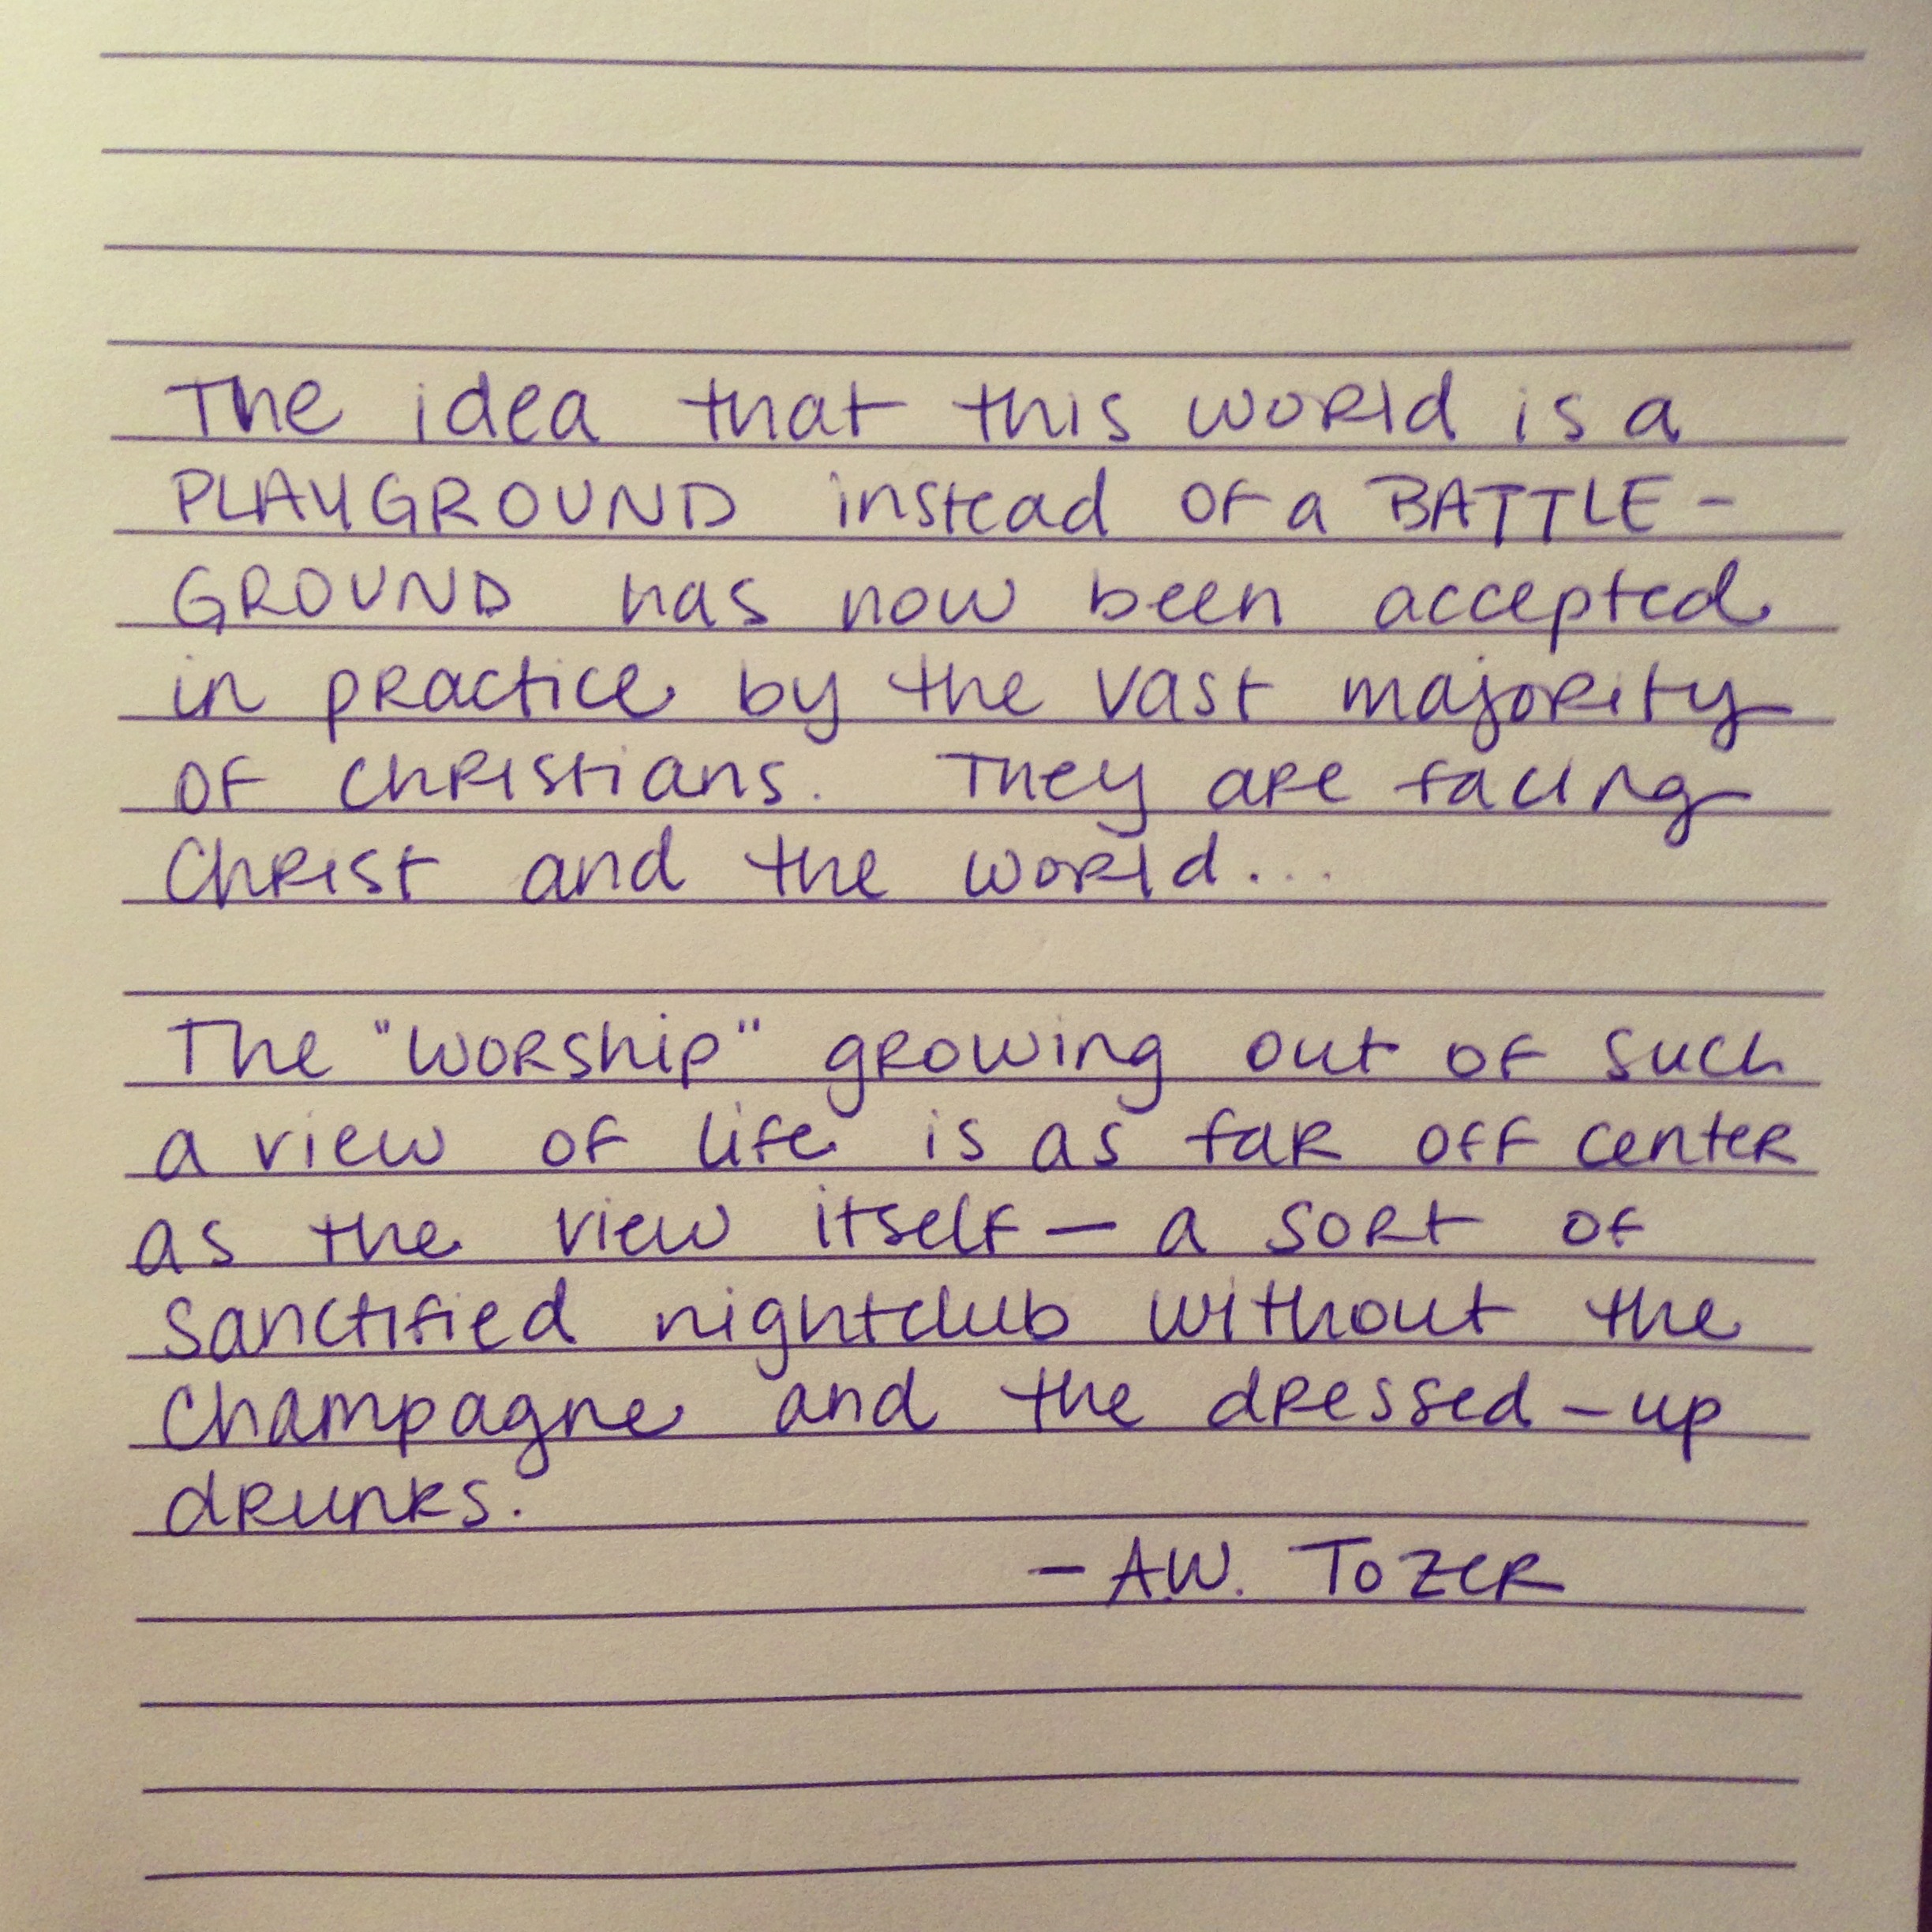 The idea that this world is a
PLAYGROUND instead of a BATTLE-
GROUND has now been accepted
in practice by the vast majority
of Christians. They are facing
Christ and the world...
The "worship" growing out of such
a view of life is as far off center
as the view itself — a sort of
sanctified nightclub without the
champagne and the dressed-up
drunks.
- A.W. Tozer